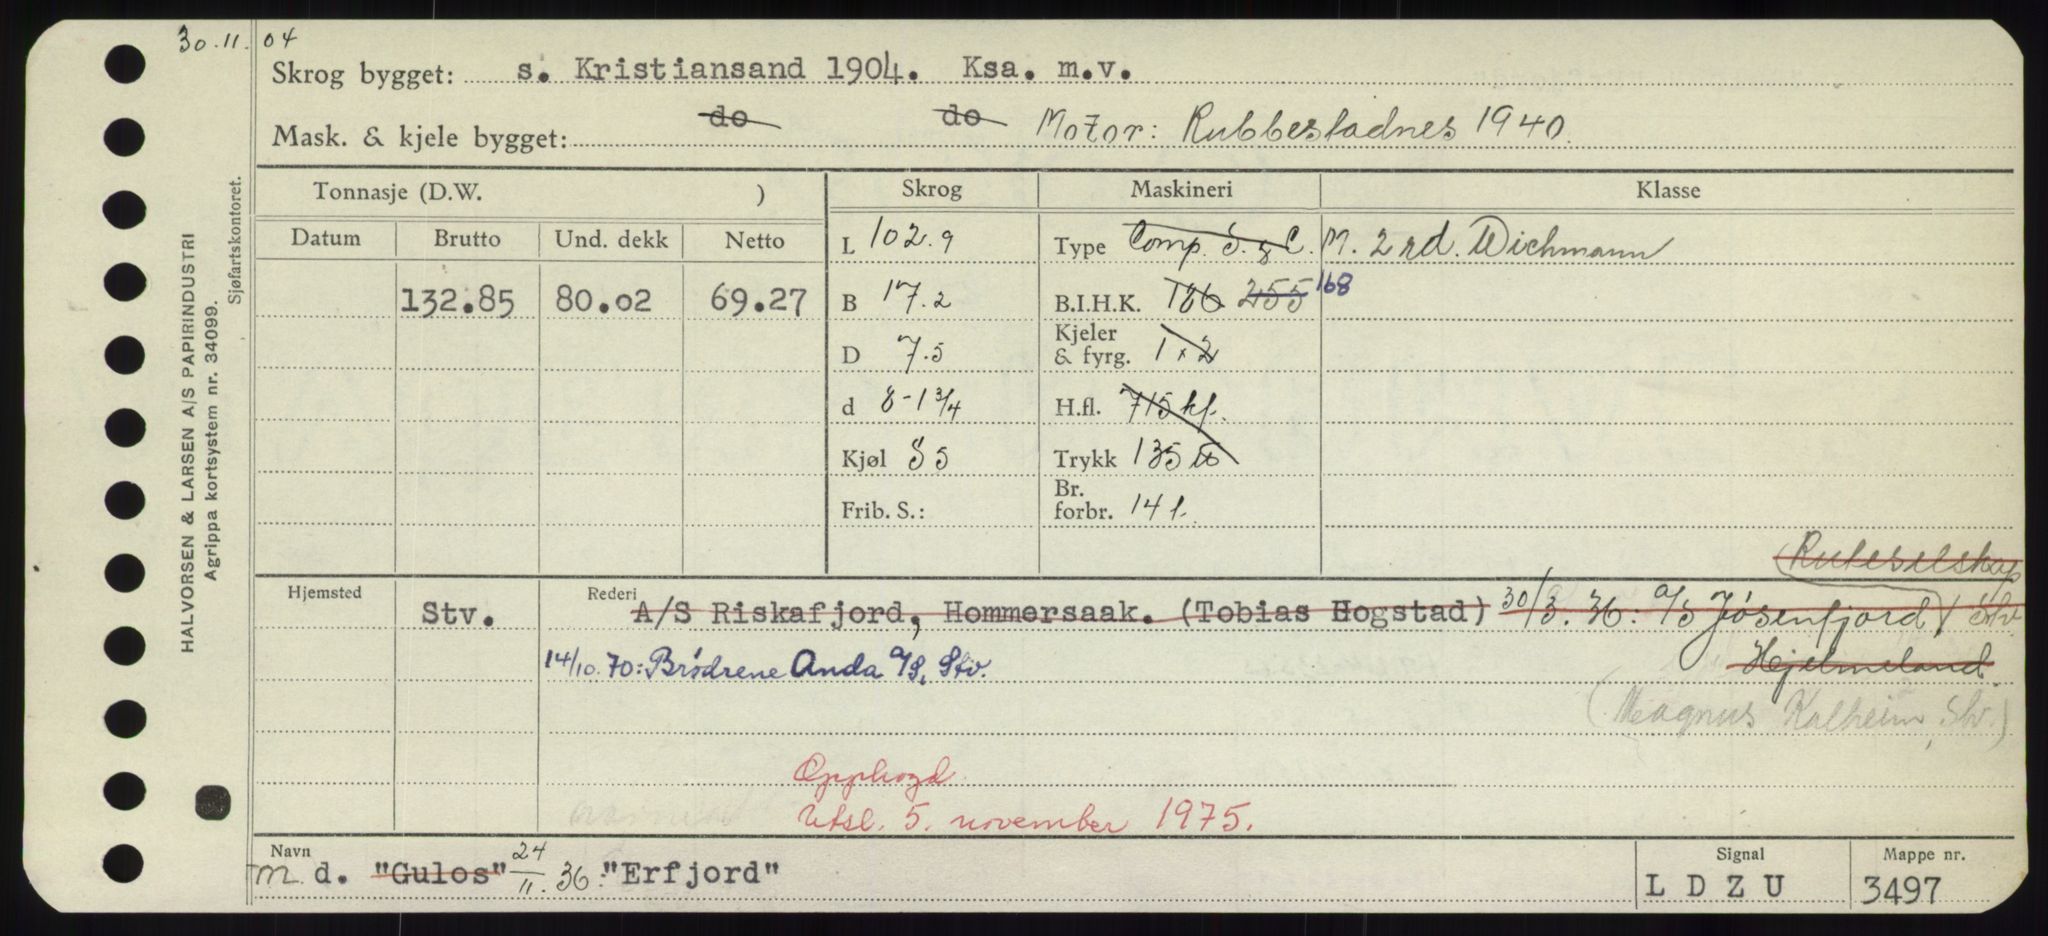 30.11.04
Skrog bygget: s. Kristiansand 1904. Ksa. m.v.
Mask. & kjele bygget: do do Motor: Rubbestadnes 1940.
HALVORSEN & LARSEN A/S PAPIRINDUSTRI
Agrippa kortsystem nr. 34099.
Sjøfartskontoret.
Tonnasje (D.W. ) Skrog Maskineri Klasse
Datum Brutto Und. dekk Netto
L 102.9 Type Comp. S. & C. M. 2 rd. Wichmann
132.85 80.02 69.27 B 17.2 B.I.H.K. 186 255 168
D 7.5 Kjeler & fyrg. 1 x 2
d 8-1 3/4 H.fl. 715 kf.
Kjøl S 5 Trykk 135 lb
Frib. S.: Br. forbr. 14 t.
Ruteselskap
Hjemsted Stv. Rederi A/S Riskafjord, Hommersaak. (Tobias Hogstad) 30/3.36: A/S Jøsenfjord, Stv
14/10.70: Brødrene Anda A/S, Stv. Hjelmeland.
(Magnus Kalheim, Stv.)
Opphogd
Utsl. 5. november 1975.
Navn m d. "Gulos" 24/11.36: "Erfjord"
Signal L D Z U
Mappe nr. 3497